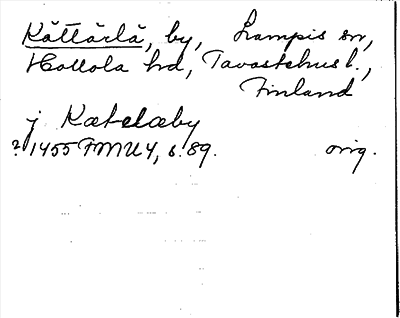 Kättärlä, by, Lampis sn,
Hollola hd, Tavastehus l.,
Finland
j Kætelæby
? 1455 FMU 4, s. 89. orig.